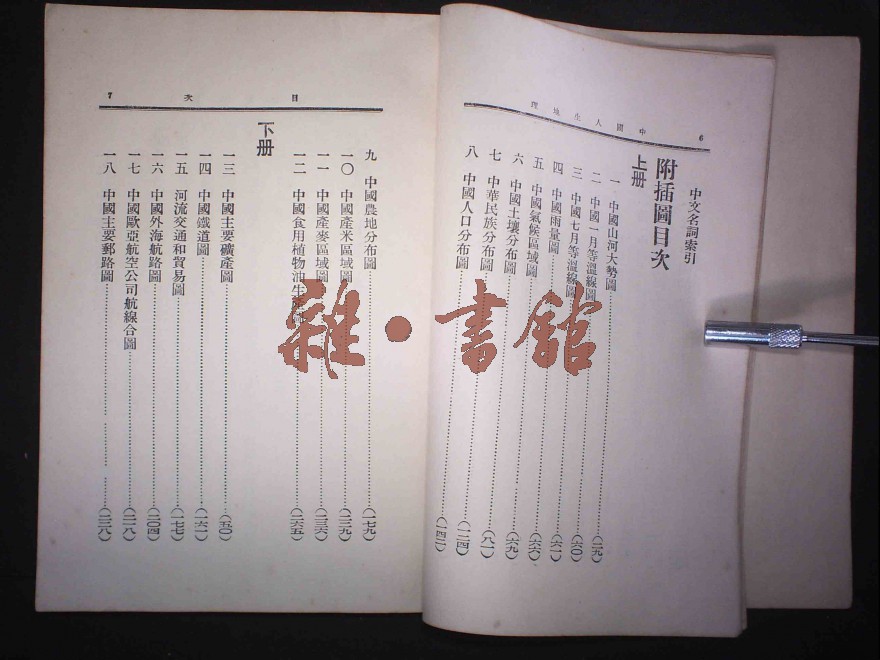 中國人生地理 6
中文名詞索引
附插圖目次
上册
一 中國山河大勢圖……(二九)
二 中國一月等溫線圖
三 中國七月等溫線圖……(六〇)
四 中國雨量圖……(六一)
五 中國氣候區域圖……(六六)
六 中國土壤分布圖……(六九)
七 中華民族分布圖……(八一)
八 中國人口分布圖……(一二四)
(一四二)
目次 7
九 中國農地分布圖……(一七九)
一〇 中國產米區域圖……(二二九)
一一 中國產麥區域圖……(二三六)
一二 中國食用植物油生……(二六五)
下册
一三 中國主要礦產圖……(五〇)
一四 中國鐵道圖……(一六一)
一五 河流交通和貿易圖……(一七七)
一六 中國外海航路圖……(二〇四)
一七 中國歐亞航空公司航線合圖……(二一八)
一八 中國主要郵路圖……(二三八)
雜·書館